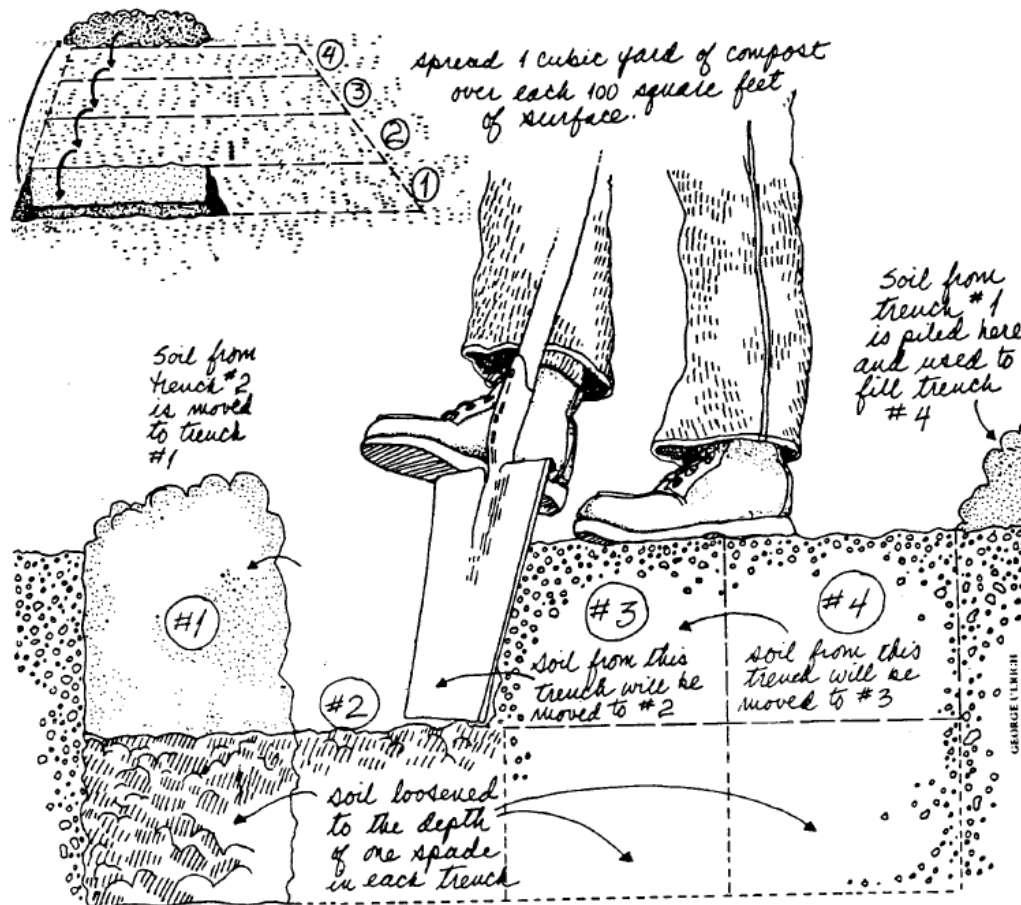 ④
③
②
①
spread 1 cubic yard of compost
over each 100 square feet
of surface.
soil from
trench #1
is piled here
and used to
fill trench
#4
soil from
trench #2
is moved
to trench
#1
#1
#2
#3
#4
soil from this
trench will be
moved to #2
soil from this
trench will be
moved to #3
soil loosened
to the depth
of one spade
in each trench
GEORGE ULRICH